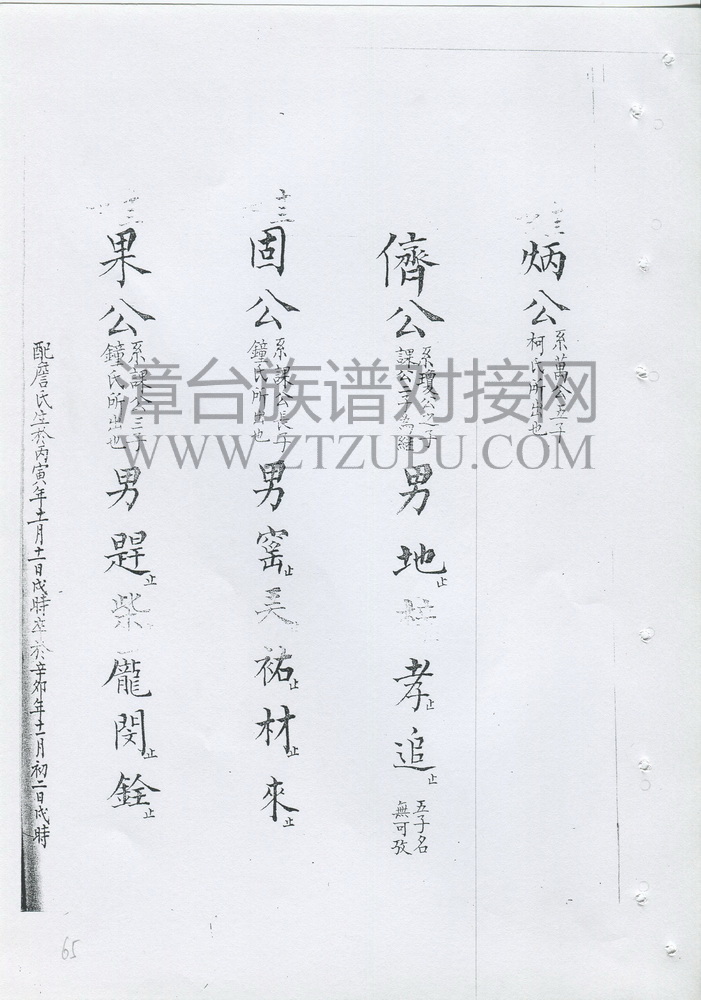 炳公
系萬公五子
柯氏所出也
儕公
系瓊公之子
課公二子為繼
男地止
孝止追止
五子名
無可攷
十三
固公
系課公長子
鐘氏所出也
男窑止美祐止材止來止
果公
系課公三子
鐘氏所出也
男趕止柴龐閔止銓止
氏生於丙寅年十一月十一日戌時卒於辛卯年十一月初二日戌時
漳台族谱对接网
WWW.ZTZUPU.COM
65